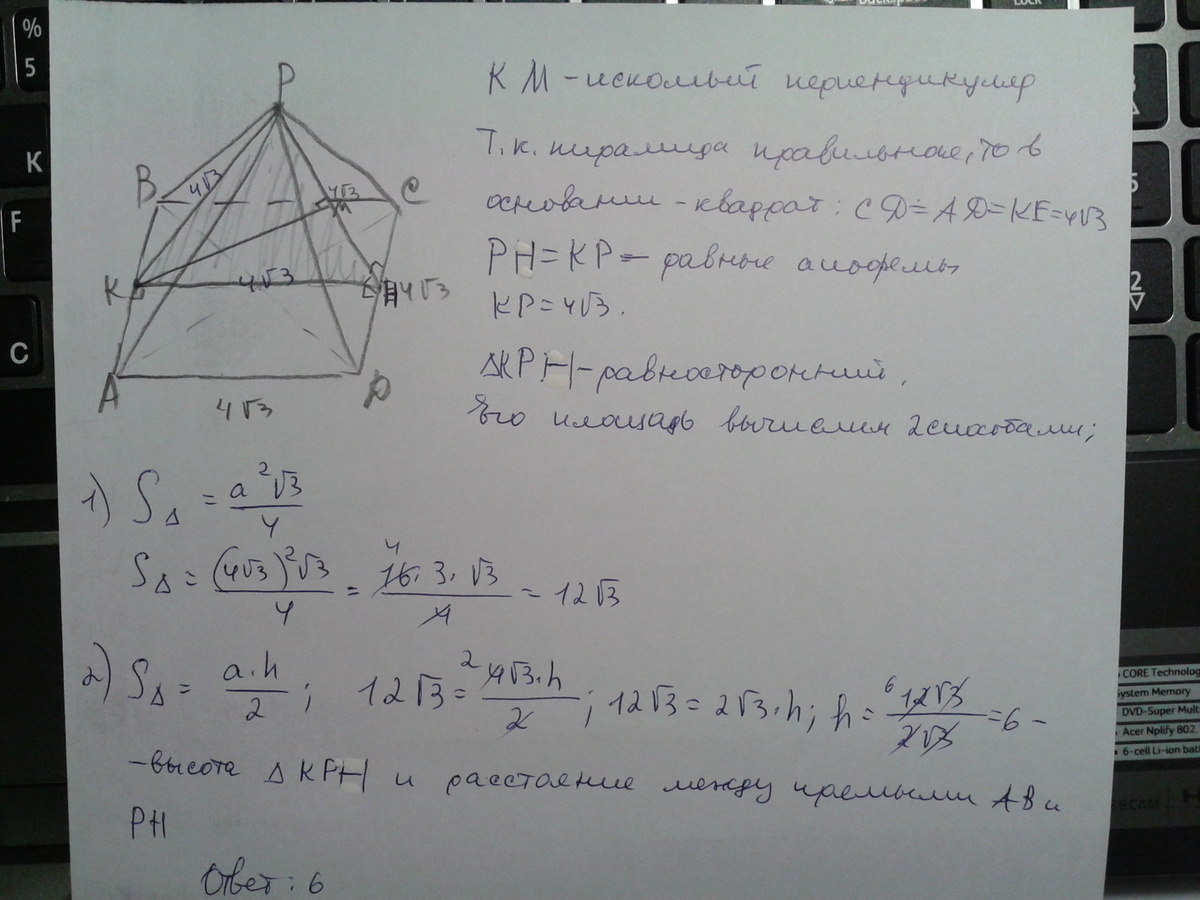 P
B
C
4√3
4√3
M
K
4√3
H
4√3
A
D
4√3
KM - искомый перпендикуляр
Т.к. пирамида правильная, то в
основании - квадрат: CD=AD=KE=4√3
PH=KP - равные апофемы
KP=4√3.
ΔKPH - равносторонний.
Его площадь вычислим 2 способами;
1) S△ = a²√3/4
S△ = (4√3)²√3/4 = 16·3·√3/4 = 12√3
2) S△ = a·h/2; 12√3 = 4√3·h/2; 12√3 = 2√3·h; h = 12√3/2√3 = 6 -
- высота ΔKPH и расстояние между прямыми AB и
PH
Ответ: 6
%
5
K
F
C
Backspace
LOCK
5
2
CORE Technolog
System Memory
DVD-Super Mult
Acer Nplify 802.
6-cell Li-ion bat